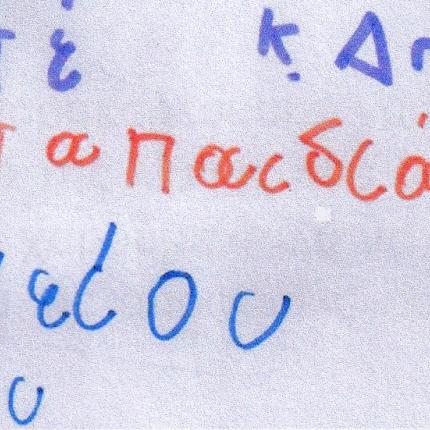 κ.
Τα παιδιά
είου
υ